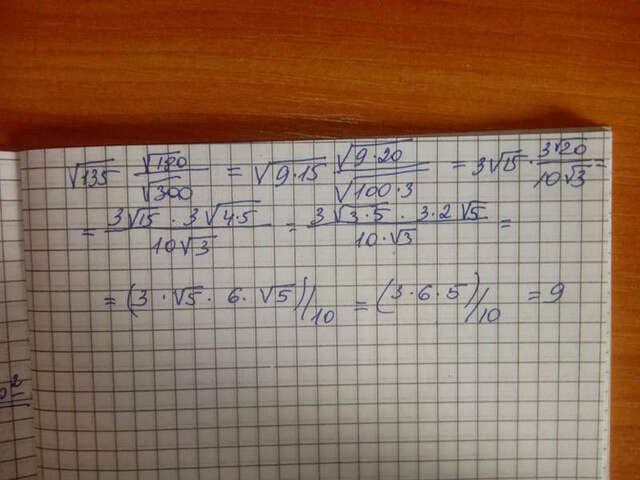 √135 √180/√300 = √9·15 √9·20/√100·3 = 3√15 · 3√20/10√3 =
= 3√15 · 3√4·5/10√3 = 3√3·5 · 3·2√5/10·√3 =
= (3 · √5 · 6 · √5)//10 = (3·6·5)//10 = 9